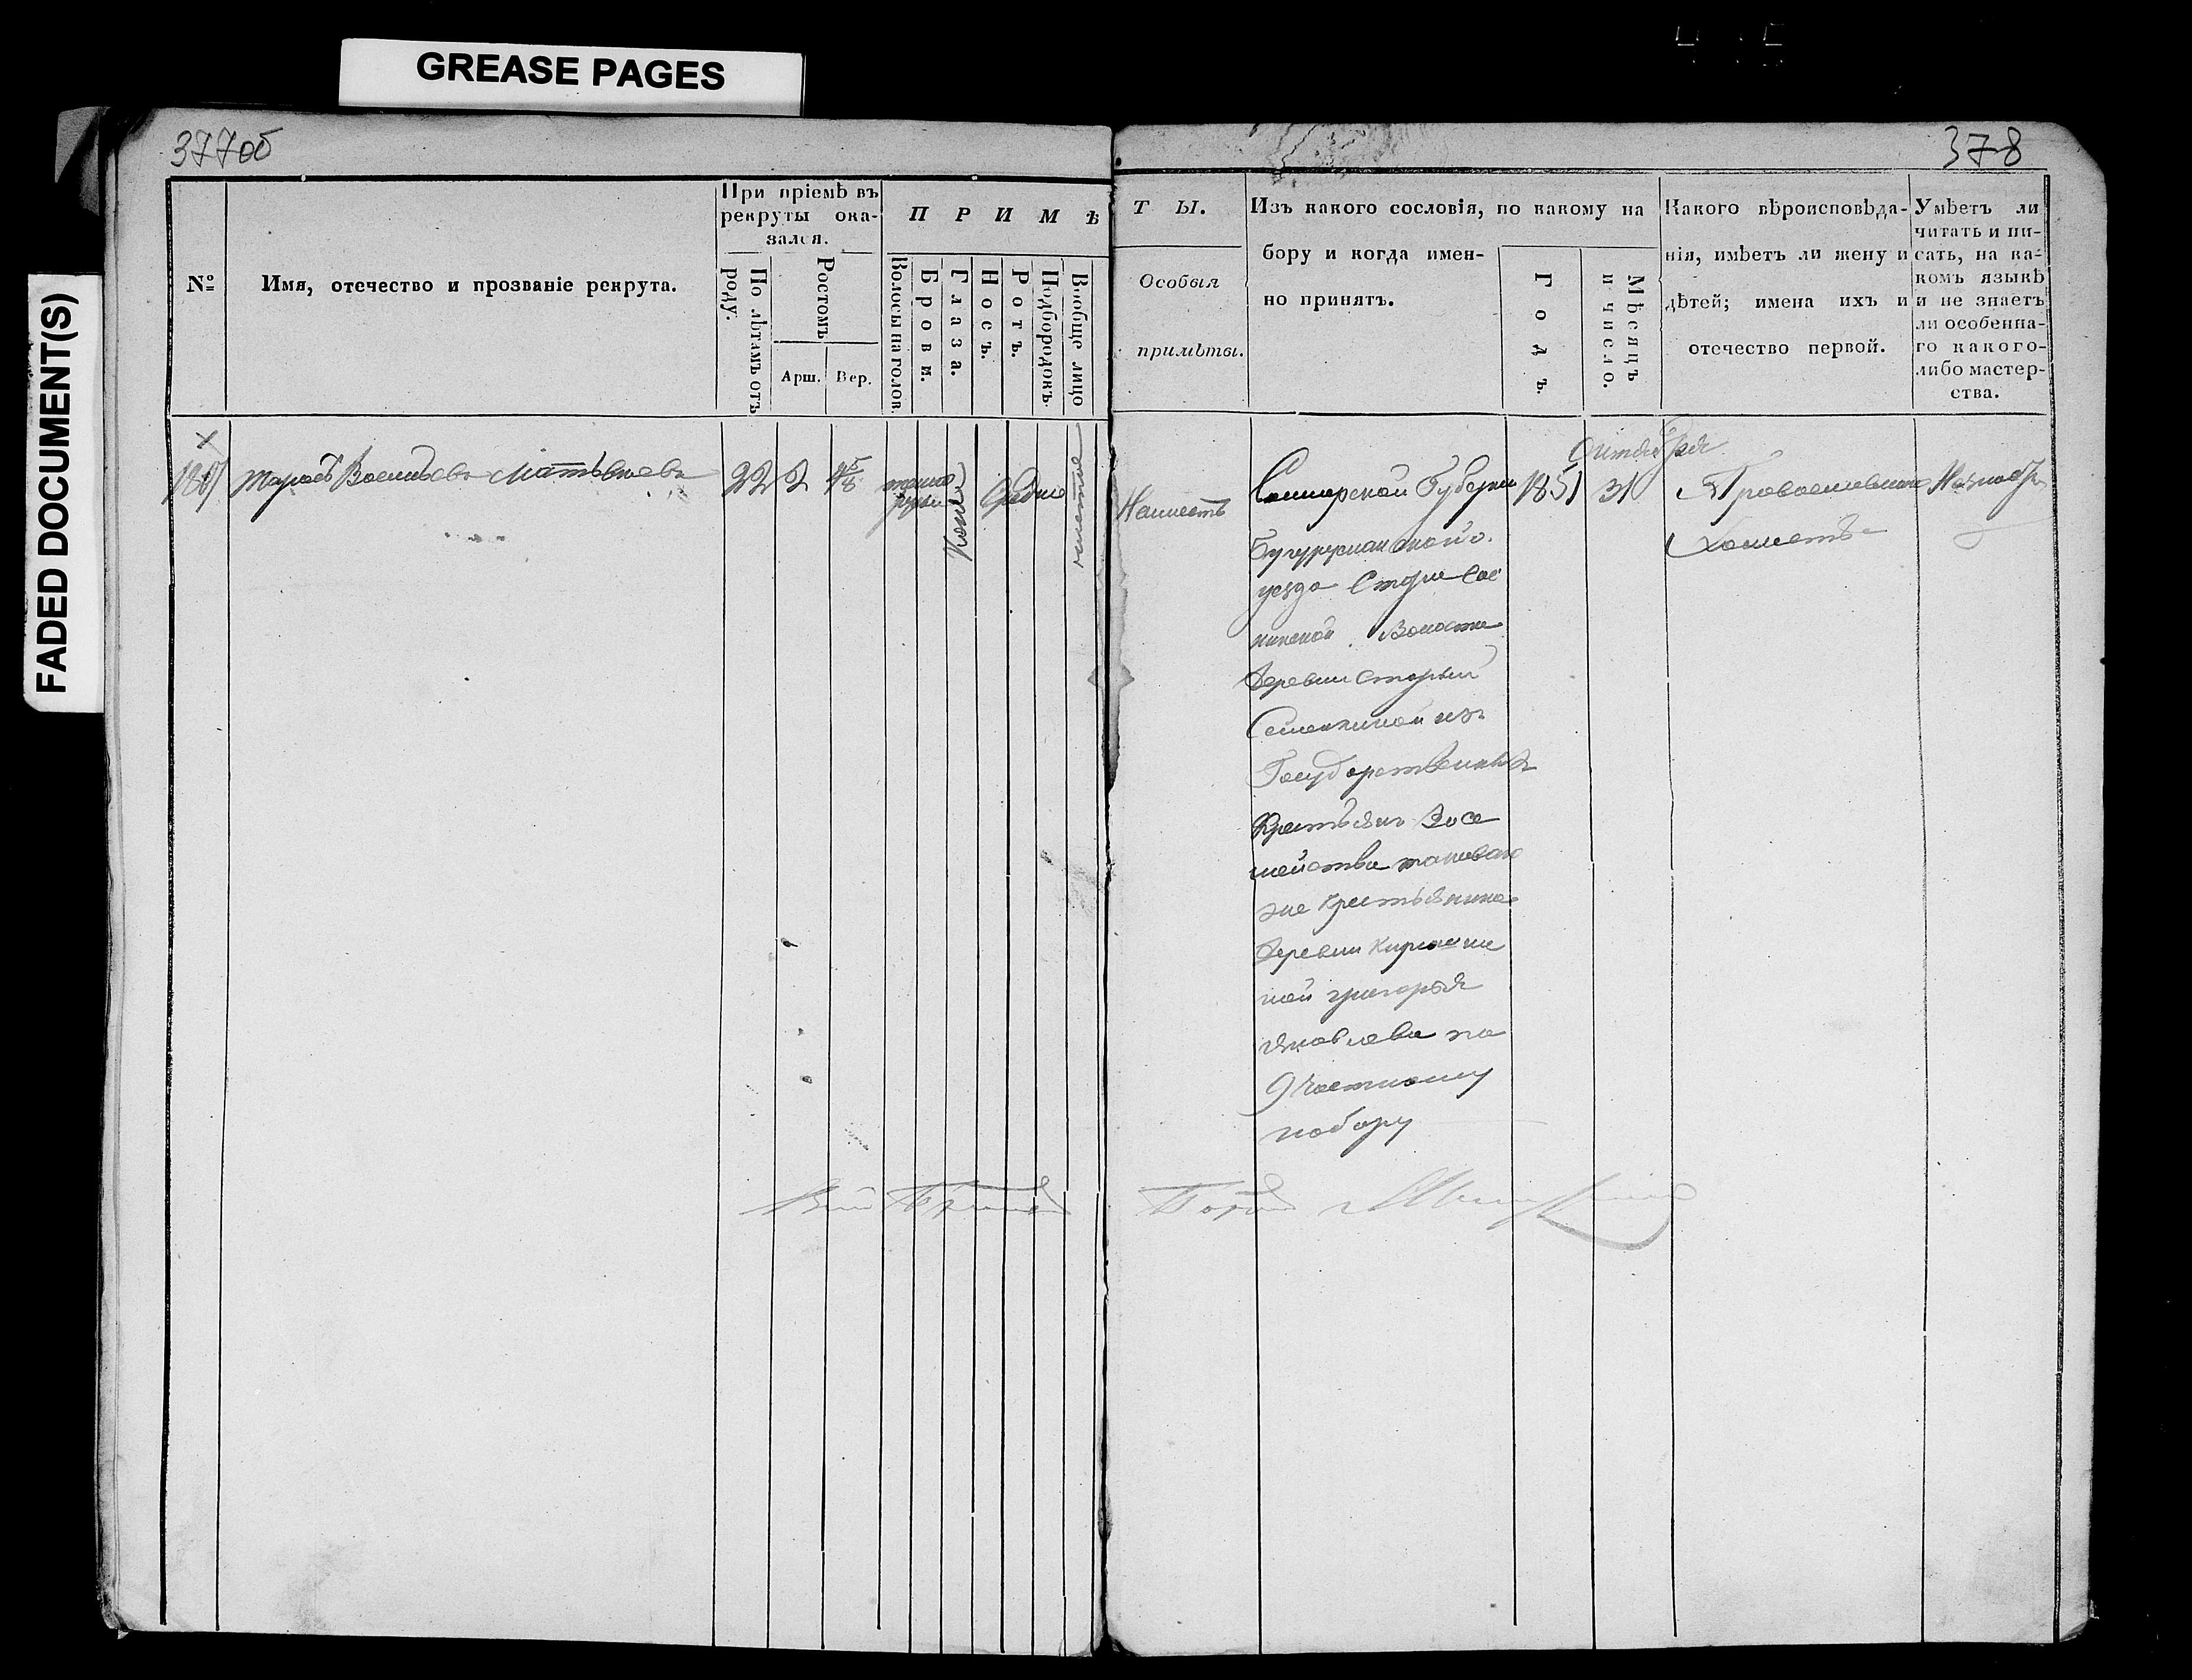 GREASE PAGES
FADED DOCUMENT(S)
377об
378
№
Имя, отечество и прозваніе рекрута.
При пріемѣ въ
рекруты ока-
зался.
По лѣтамъ отъ
роду.
Ростомъ
Арш.
Вер.
ПРИМѢ
Волосы на голов.
Брови.
Глаза.
Носъ.
Ротъ.
Подбородокъ.
Вообще лицо
ТЫ.
Особыя
примѣты.
Изъ какого сословія, по какому на
бору и когда имен-
но принятъ.
Годъ.
Мѣсяцъ
и число.
Какого вѣроисповѣда-
нія, имѣетъ ли жену и
дѣтей; имена ихъ и
отечество первой.
Умѣетъ ли
читать и пи-
сать, на ка-
комъ языкѣ
и не знаетъ
ли особенна-
го какого-
либо мастер-
ства.
Тарасъ Васильевъ Матвѣевъ
22 2
темно
русые
Карие
Средние
чистое
Неимеетъ
Октября
1851 31
Православнаго
Холостъ
Самарской Губернии
Бугурусланского
уезда Старо Сос
нинской Волости
деревни Старый
Семенкиной изъ
Государственныхъ
Крестьянъ Во се
мейства таковаго
же крестьянина
деревни Кирюшки
ной Григорья
Яковлева по
9 частному
набору